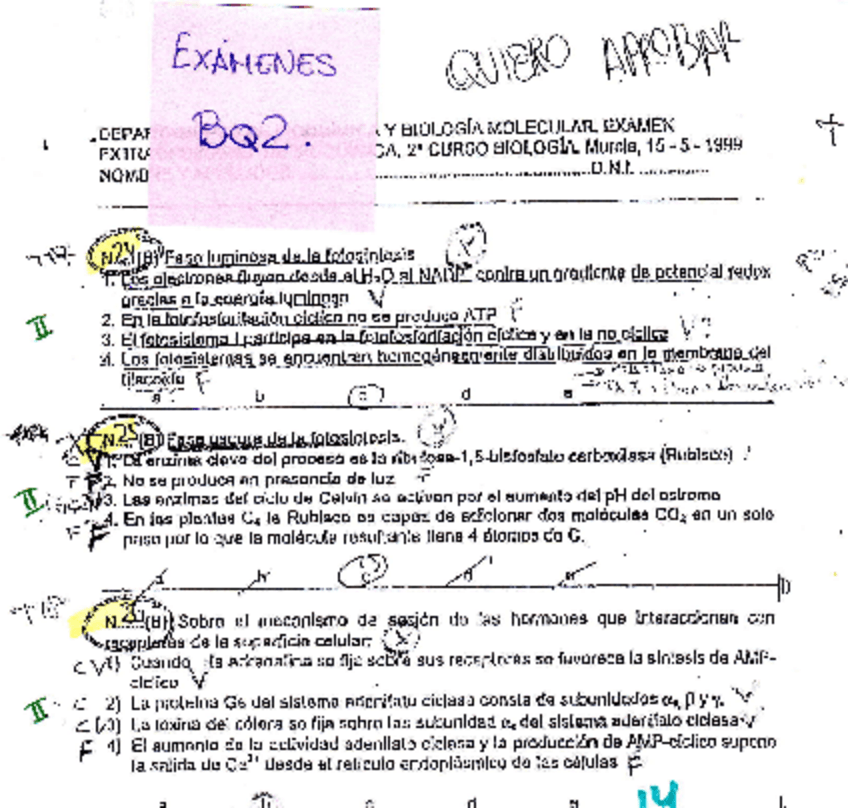 EXÁMENES
BQ2.
QUIERO APROBAR
DEPAR A Y BIOLOGÍA MOLECULAR. EXAMEN
EXTRA CA, 2º CURSO BIOLOGÍA. Murcia, 15 - 5 - 1999
NOMB D.N.I.
N.24 (B) Fase luminosa de la fotosíntesis
1. Los electrones fluyen desde el H₂O al NADP⁺ contra un gradiente de potencial redox
gracias a la energía luminosa V
II
2. En la fotofosforilación cíclica no se produce ATP F
3. El fotosistema I participa en la fotofosforilación cíclica y en la no cíclica V?
4. Los fotosistemas se encuentran homogéneamente distribuidos en la membrana del
tilacoide F
a b c d e
N.25 (B) Fase oscura de la fotosíntesis.
C V 1. La enzima clave del proceso es la ribulosa-1,5-bisfosfato carboxilasa (Rubisco)
F F 2. No se produce en presencia de luz F
II 3. Las enzimas del ciclo de Calvin se activan por el aumento del pH del estroma
F F 4. En las plantas C₄ la Rubisco es capaz de adicionar dos moléculas CO₂ en un solo
paso por lo que la molécula resultante tiene 4 átomos de C.
a b c d e
N. (B) Sobre el mecanismo de acción de las hormonas que interaccionan con
receptores de la superficie celular:
C V 1) Cuando la adrenalina se fija sobre sus receptores se favorece la síntesis de AMP-
cíclico V
II C 2) La proteína Gs del sistema adenilato ciclasa consta de subunidades α, β y γ. V
C 3) La toxina del cólera se fija sobre las subunidad αₛ del sistema adenilato ciclasa V
F 4) El aumento de la actividad adenilato ciclasa y la producción de AMP-cíclico supone
la salida de Ca²⁺ desde el retículo endoplásmico de las células F
a b c d e
14